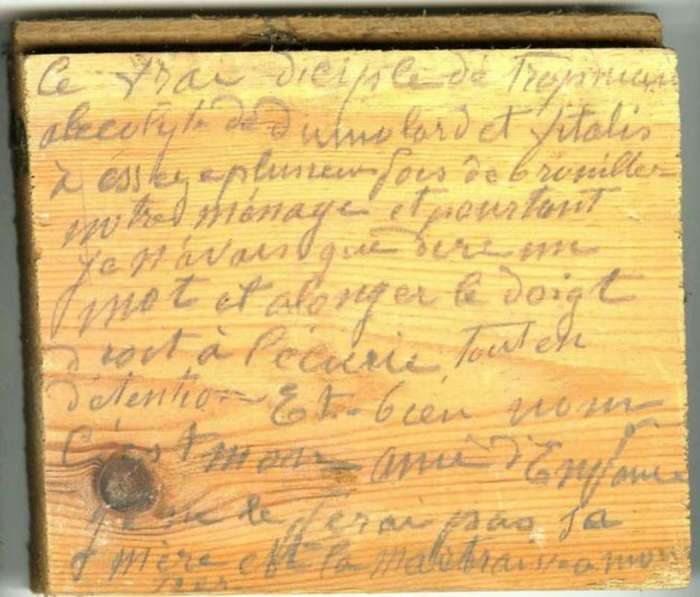 Ce vrai diciple de Tropmann
de Dumolard et Vitalis
à ésseye plusieur fois de brouiller
notre ménage et pourtant
je n'avais que dire un
mot et alonger le doigt
droit à l'écurie tout en
détention Et bien nom
C'est mon ami d'Enfance
je ne le ferai pas sa
mère est la maitraisse a mon